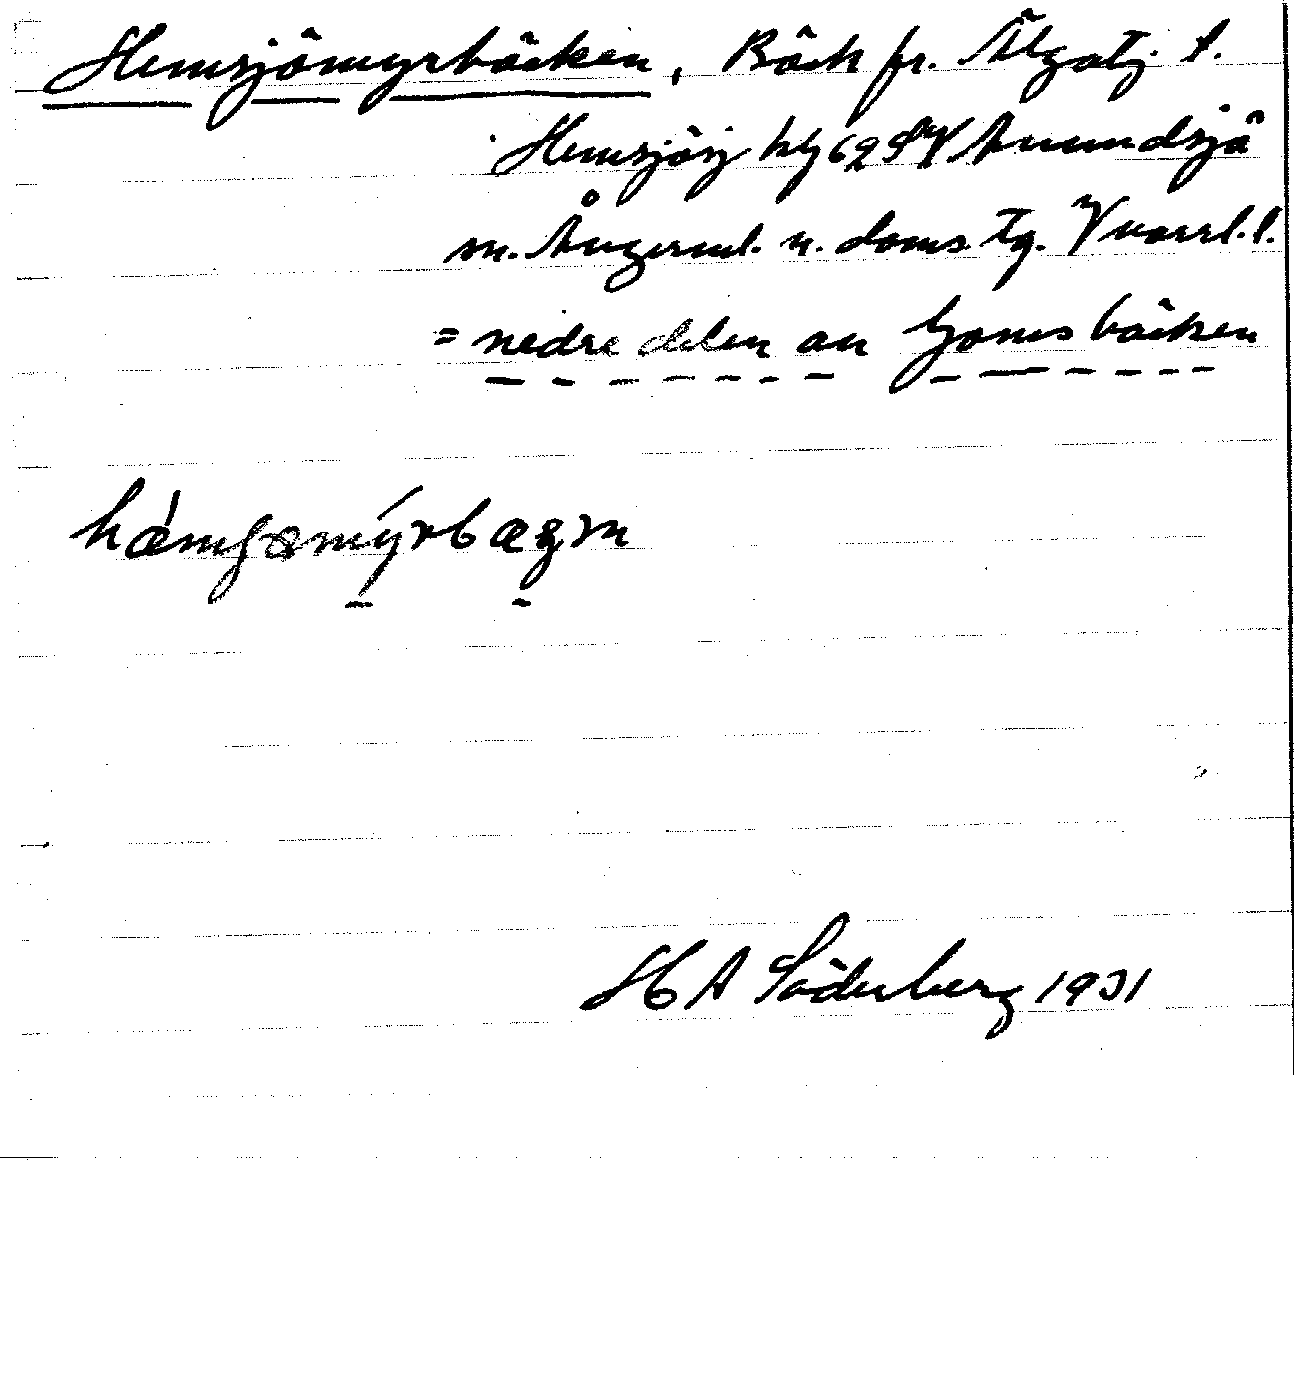 Hemsjömyrbäcken, Bäck fr. Älgatj. t.
Hemsjösj hlj 69 SV Anundsjö
sn. Ångerml. n. doms. Tg. Vnorrl. l.
= nedre delen av Gomsbäcken
hæmʃømýrbæȥm
H A Söderberg 1931